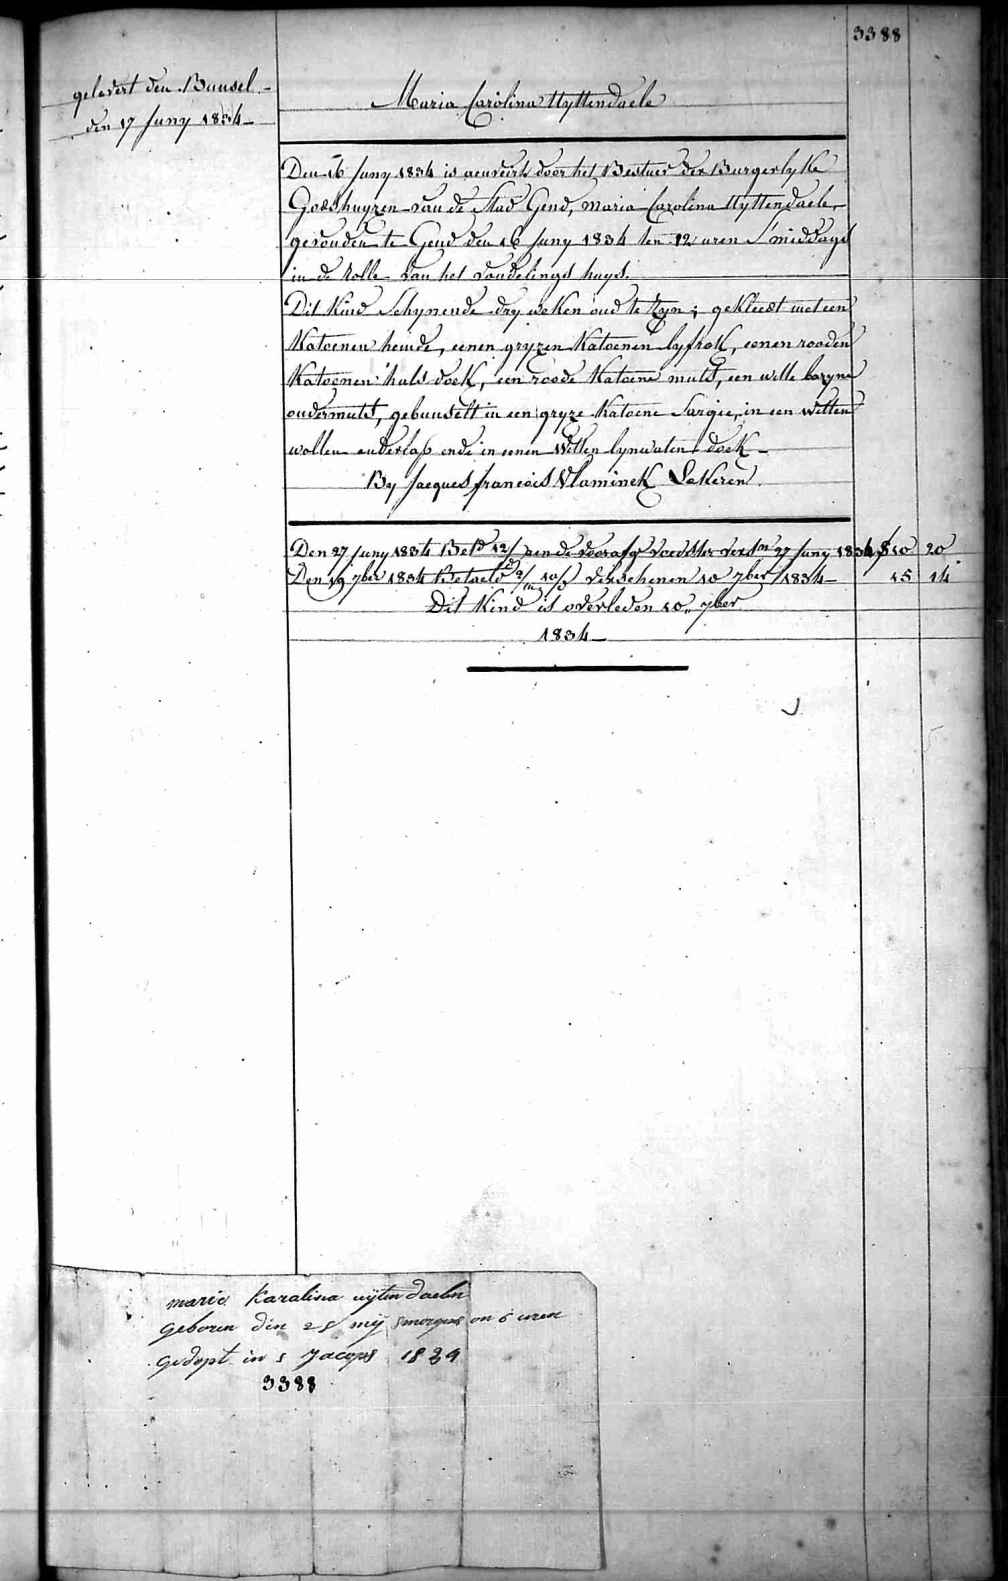 3388
gelevert den Bunsel -
den 17 Juny 1834 -
Maria Carolina Uyttendaele
Den 16 Juny 1834 is aenveirt door het Bestuer der Burgerlyke
Godshuyzen van de Stad Gend, Maria Carolina Uyttendaele,
gevonden te Gend den 16 Juny 1834 ten 12 uren S'middags
in de Rolle van het vondelings huys.
Dit Kind Schynende dry weken oud te Zyn; gekleedt met een
Katoenen hemde, eenen gryzen Katoenen lyfrok, eenen rooden
Katoenen hals doek, een roode Katoene muts, een witte bazyne
ondermuts, gebunselt in een gryze Katoene Sargie, in een witten
wollen onderlap ende in eenen Witten lynwaten doek -
By Jacques francois Vlaminck Lokeren.
Den 27 Juny 1834 Bet.d 12/ aen de voorafg voedster vers.n 27 Juny 1834 f 10 20
Den 19 7ber 1834 Betaeld 2/m 10/d verschenen 10 7ber 1834 - 15 14
Dit Kind is overleden 10,, 7ber
1834 -
maria karalina uijtendaelen
geboren den 25 mij smorgens om 6 uren
gedopt in s Jacops 1834
3388